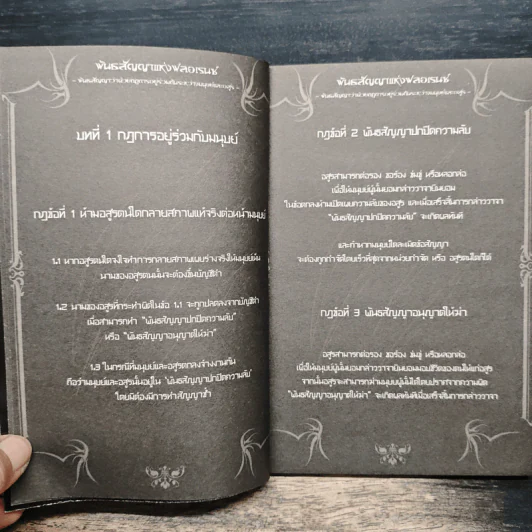 พันธสัญญาแห่งฟลอเรนซ์
~ พันธสัญญาว่าด้วยกฎการอยู่ร่วมกันระหว่างมนุษย์และอสูร ~
บทที่ 1 กฎการอยู่ร่วมกับมนุษย์
กฎข้อที่ 1 ห้ามอสูรตนใดกลายสภาพแท้จริงต่อหน้ามนุษย์
1.1 หากอสูรตนใดจงใจทำการกลายสภาพแบบร่างจริงให้มนุษย์เห็น
นามของอสูรตนนั้นจะต้องขึ้นบัญชีดำ
1.2 นามของอสูรที่กระทำผิดในข้อ 1.1 จะถูกปลดลงจากบัญชีดำ
เมื่อสามารถทำ "พันธสัญญาปกปิดความลับ"
หรือ "พันธสัญญาอนุญาตให้ฆ่า"
1.3 ในกรณีที่มนุษย์และอสูรตกลงจ้างงานกัน
ถือว่ามนุษย์และอสูรนั้นอยู่ใน 'พันธสัญญาปกปิดความลับ'
โดยมิต้องมีการทำสัญญาซ้ำ
พันธสัญญาแห่งฟลอเรนซ์
~ พันธสัญญาว่าด้วยกฎการอยู่ร่วมกันระหว่างมนุษย์และอสูร ~
กฎข้อที่ 2 พันธสัญญาปกปิดความลับ
อสูรสามารถต่อรอง ขอร้อง ข่มขู่ หรือหลอกล่อ
เพื่อให้มนุษย์ผู้นั้นยอมกล่าววาจายินยอม
ในข้อตกลงด้านปิดบังความลับของอสูร และเมื่อเสร็จสิ้นการกล่าววาจา
"พันธสัญญาปกปิดความลับ" จะเกิดผลทันที
และหากมนุษย์ใดละเมิดต่อสัญญา
จะต้องถูกกำจัดโดยเร็วที่สุดจากหน่วยกำจัด หรือ อสูรตนใดก็ได้
กฎข้อที่ 3 พันธสัญญาอนุญาตให้ฆ่า
อสูรสามารถต่อรอง ขอร้อง ข่มขู่ หรือหลอกล่อ
เพื่อให้มนุษย์ผู้นั้นยอมกล่าววาจายินยอมมอบชีวิตของตนให้แก่อสูร
จากนั้นอสูรจะสามารถฆ่ามนุษย์ผู้นั้นได้โดยปราศจากความผิด
"พันธสัญญาอนุญาตให้ฆ่า" จะเกิดผลทันทีเมื่อเสร็จสิ้นการกล่าววาจา